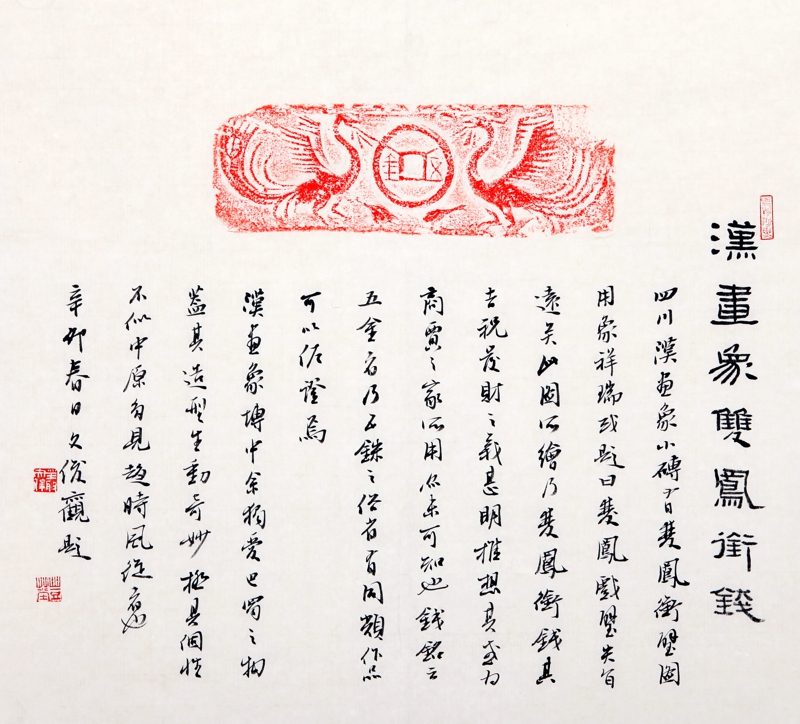 漢畫象雙鳳銜錢
四川漢畫象小磚雙鳳銜璧圖
用象祥瑞或題曰雙鳳戲璧失旨
遠矣此圖所繪乃雙鳳銜錢其
吉祝發財之義甚明推想其或為
商賈之家所用亦未可知也錢銘云
五金者乃五銖之俗省有同類作品
可以佐證焉
漢畫象塼中余獨愛巴蜀之物
蓋其造型生動奇妙極具個性
不似中原多見趨時風從者也
辛卯春日文俊觀題